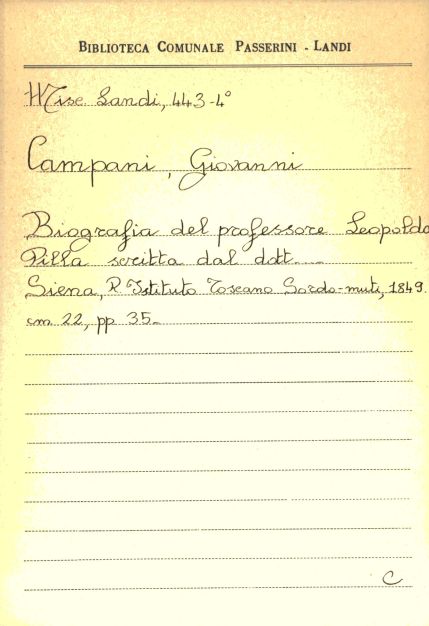 BIBLIOTECA COMUNALE PASSERINI - LANDI
Misc. Landi, 443-4°
Campani, Giovanni
Biografia del professore Leopoldo
Pilla scritta dal dott. ...
Siena, R. Istituto Toscano Sordo-muti, 1849.
cm 22, pp 35.
C